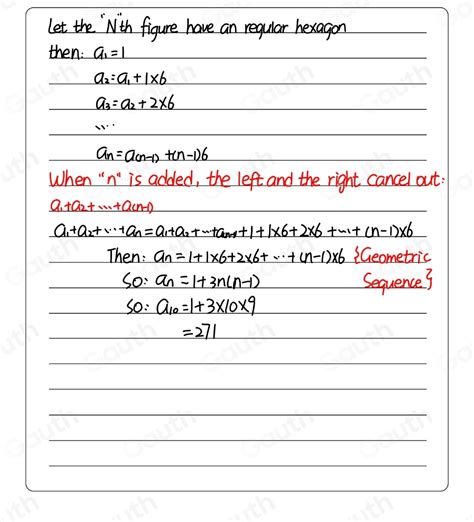 Let the "N"th figure have an regular hexagon
then: a₁=1
a₂=a₁+1×6
a₃=a₂+2×6
....
aₙ=a(n-1)+(n-1)6
When "n" is added, the left and the right cancel out:
a₁+a₂+...+a(n-1)
a₁+a₂+...+aₙ=a₁+a₂+...+aₙ₋₁+1+1×6+2×6+...+(n-1)×6
Then: aₙ=1+1×6+2×6+...+(n-1)×6 {Geometric
So: aₙ=1+3n(n-1) Sequence}
So: a₁₀=1+3×10×9
=271